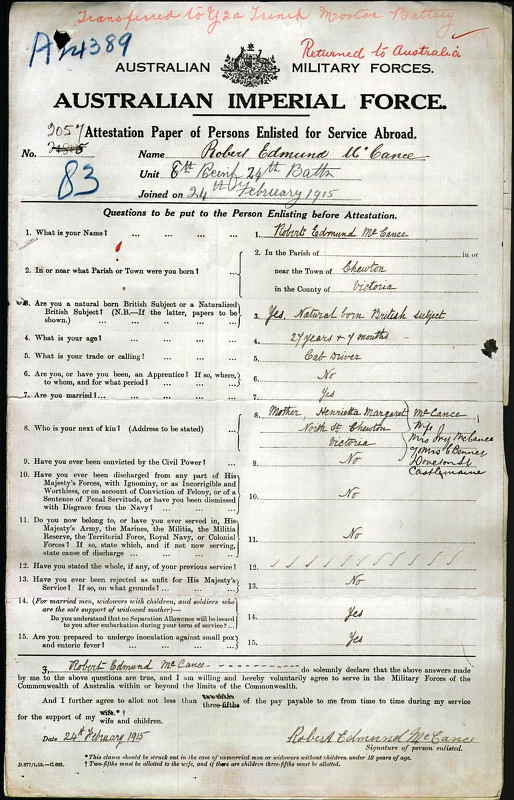 Transferred to Y2a Trench Mortar Battery
A14389
Returned to Australia
AUSTRALIAN MILITARY FORCES.
AUSTRALIAN IMPERIAL FORCE.
2057 Attestation Paper of Persons Enlisted for Service Abroad.
No. Name Robert Edmund McCance
83 Unit 8th Reinf 24th Battn
Joined on 24th February 1915
Questions to be put to the Person Enlisting before Attestation.
1. What is your Name? ... ... ... ... 1. Robert Edmund McCance
2. In or near what Parish or Town were you born? ... 2. In the Parish of in or
near the Town of Chewton
in the County of Victoria
3. Are you a natural born British Subject or a Naturalized
British Subject? (N.B.—If the latter, papers to be
shown.) ... ... ... ... ... 3. Yes. Natural born British subject
4. What is your age? ... ... ... ... 4. 27 years + 7 months
5. What is your trade or calling? ... ... ... 5. Cab Driver
6. Are you, or have you been, an Apprentice? If so, where,
to whom, and for what period? ... ... ... 6. No
7. Are you married? ... ... ... ... ... 7. Yes
8. Who is your next of kin? (Address to be stated) ... 8. Mother Henrietta Margaret McCance
North St Chewton
Victoria
Wife
Mrs Ivy McCance
Castlemaine
9. Have you ever been convicted by the Civil Power? ... 9. No
10. Have you ever been discharged from any part of His
Majesty's Forces, with Ignominy, or as Incorrigible and
Worthless, or on account of Conviction of Felony, or of a
Sentence of Penal Servitude, or have you been dismissed
with Disgrace from the Navy? ... ... ... 10. No
11. Do you now belong to, or have you ever served in, His
Majesty's Army, the Marines, the Militia, the Militia
Reserve, the Territorial Force, Royal Navy, or Colonial
Forces? If so, state which, and if not now serving,
state cause of discharge ... ... ... ... 11. No
12. Have you stated the whole, if any, of your previous service? 12.
13. Have you ever been rejected as unfit for His Majesty's
Service? If so, on what grounds? ... ... ... 13. No
14. (For married men, widowers with children, and soldiers who
are the sole support of widowed mother)—
Do you understand that no Separation Allowance will be issued
to you after embarkation during your term of service? ... 14. Yes
15. Are you prepared to undergo inoculation against small pox
and enteric fever? ... ... ... ... ... 15. Yes
I, Robert Edmund McCance do solemnly declare that the above answers made
by me to the above questions are true, and I am willing and hereby voluntarily agree to serve in the Military Forces of the
Commonwealth of Australia within or beyond the limits of the Commonwealth.
And I further agree to allot not less than two-fifths three-fifths of the pay payable to me from time to time during my service
for the support of my wife.*† wife and children.
Date 24th February 1915
Robert Edmund McCance
Signature of person enlisted.
*This clause should be struck out in the case of unmarried men or widowers without children under 18 years of age.
† Two-fifths must be allotted to the wife, and if there are children three-fifths must be allotted.